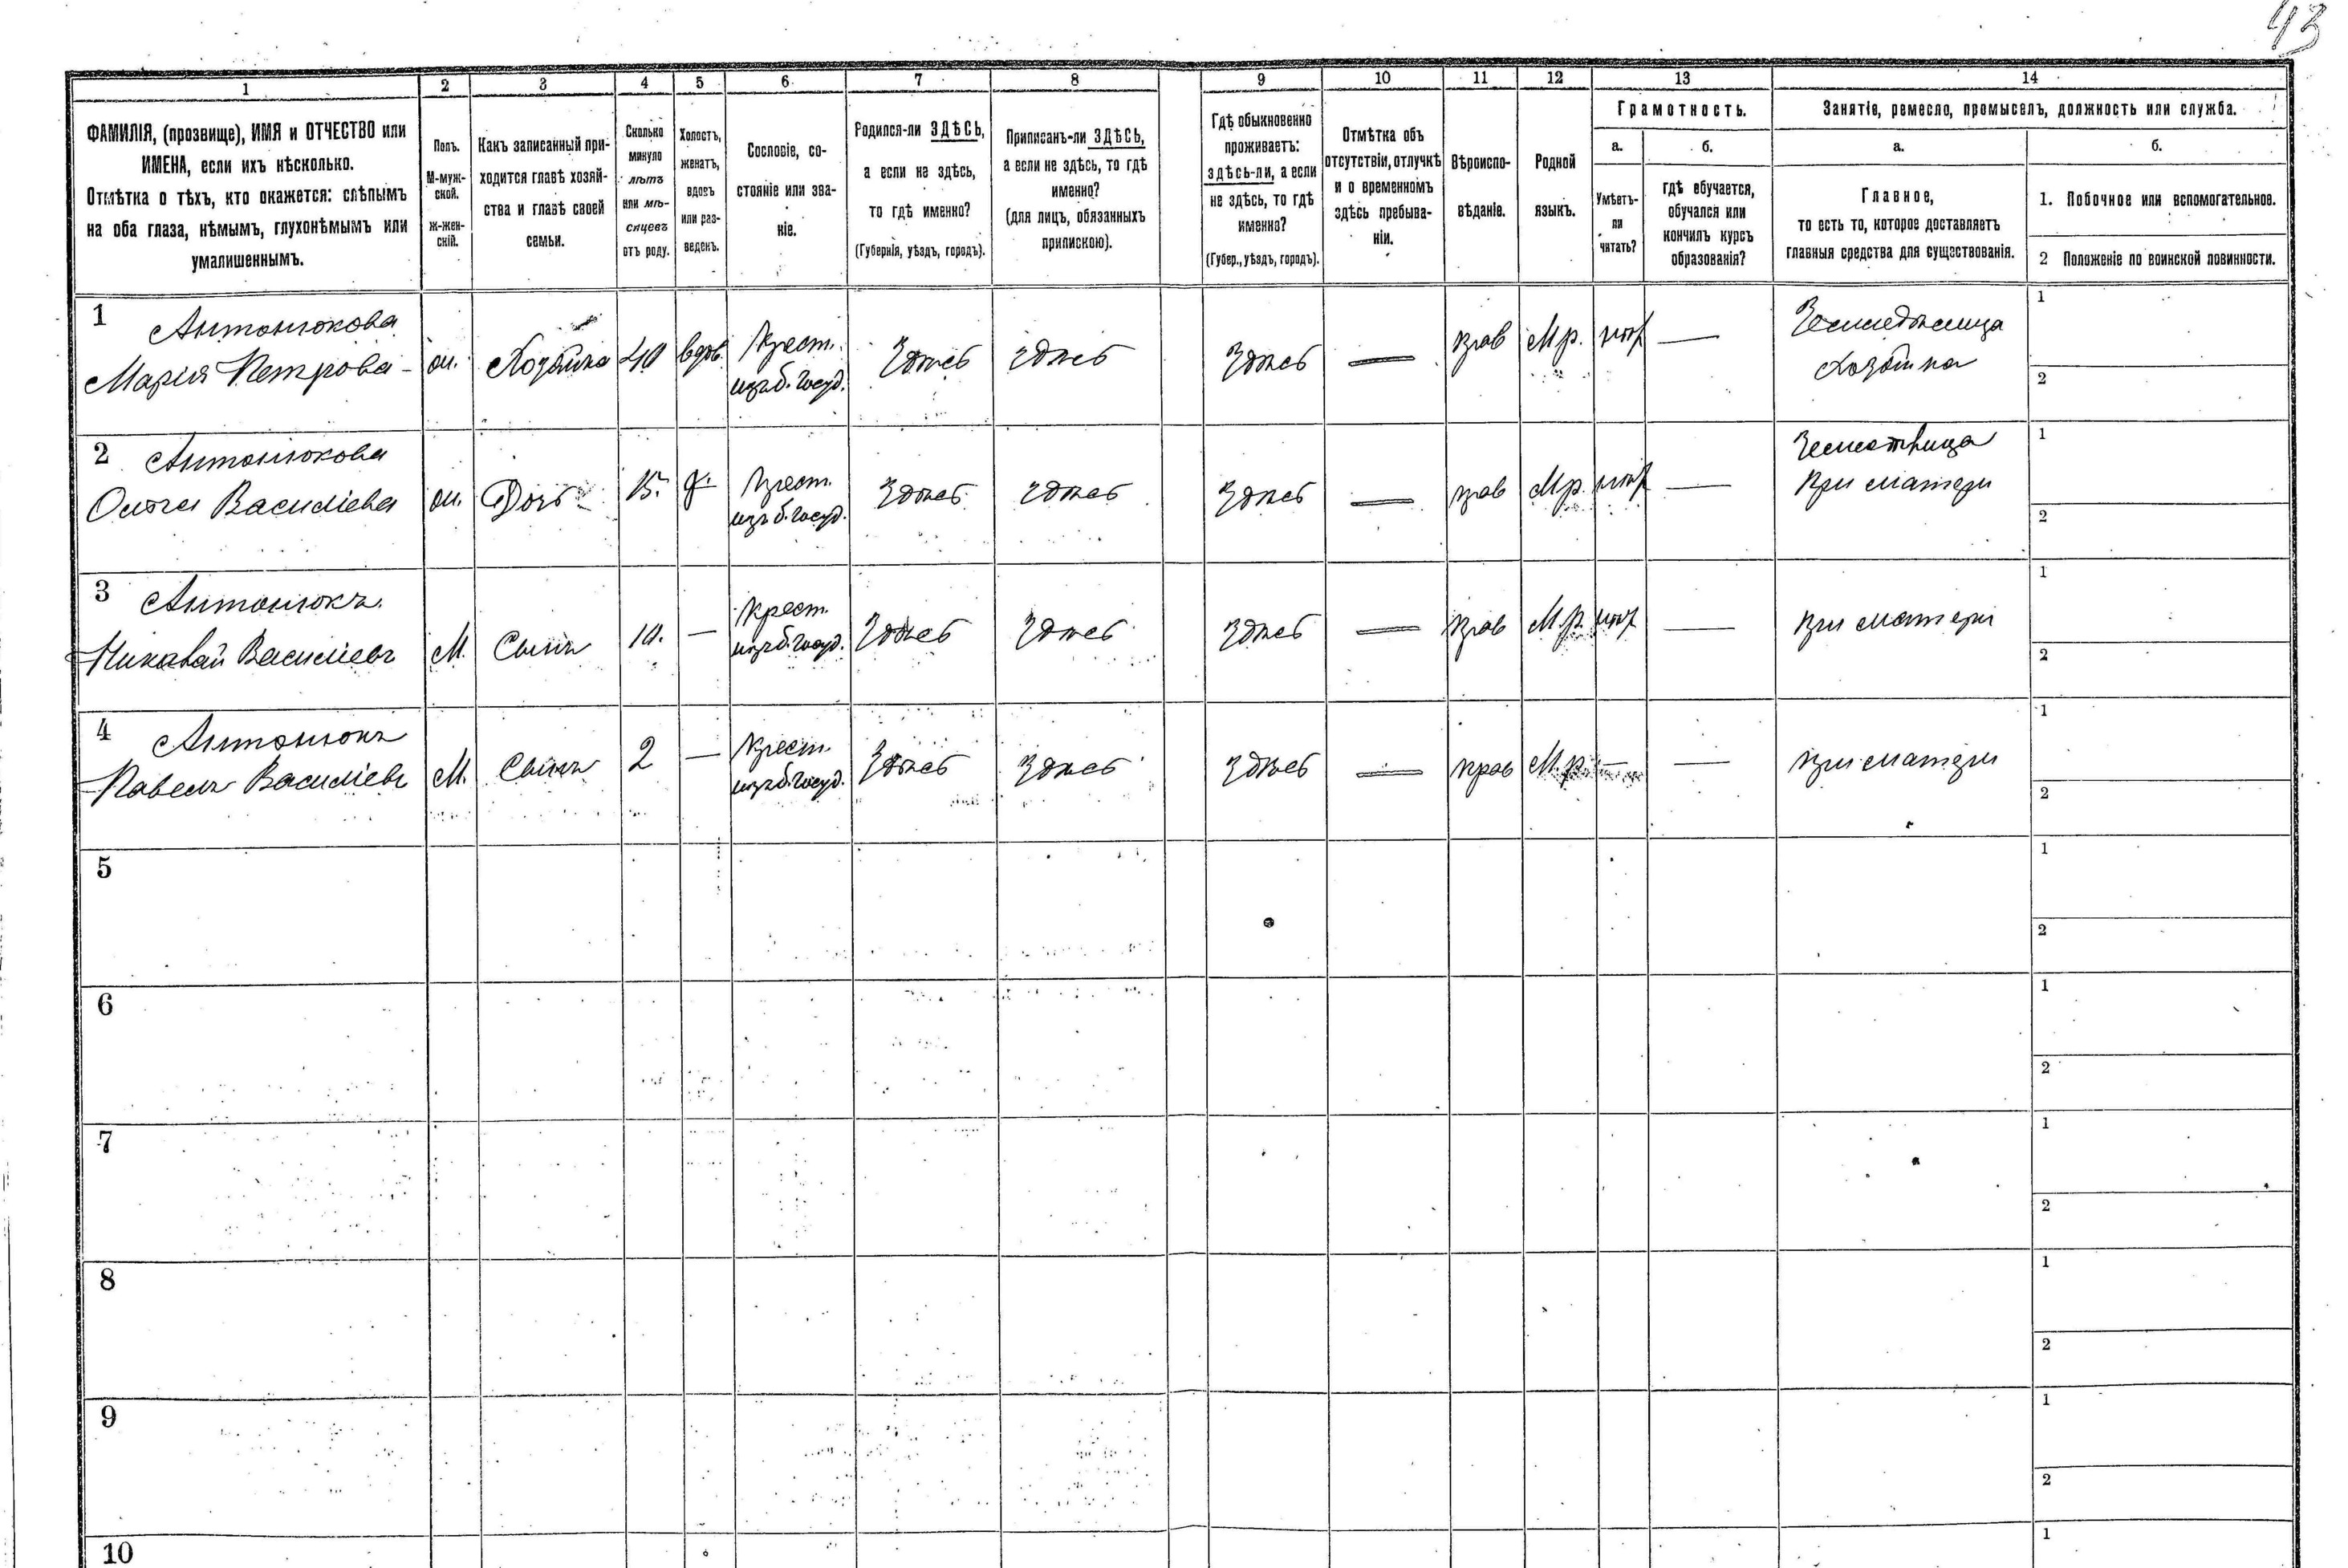 43
1 2 3 4 5 6 7 8 9 10 11 12 13 14
ФАМИЛІЯ, (прозвище), ИМЯ и ОТЧЕСТВО или
ИМЕНА, если ихъ нѣсколько.
Отмѣтка о тѣхъ, кто окажется: слѣпымъ
на оба глаза, нѣмымъ, глухонѣмымъ или
умалишеннымъ.
Полъ.
М-муж-
ской.
Ж-жен-
скій.
Какъ записанный при-
ходится главѣ хозяй-
ства и главѣ своей
семьи.
Сколько
минуло
лѣтъ
или мѣ-
сяцевъ
отъ роду.
Холостъ,
женатъ,
вдовъ
или раз-
веденъ.
Сословіе, со-
стояніе или зва-
ніе.
Родился-ли ЗДѢСЬ,
а если не здѣсь,
то гдѣ именно?
(Губернія, уѣздъ, городъ).
Приписанъ-ли ЗДѢСЬ,
а если не здѣсь, то гдѣ
именно?
(для лицъ, обязанныхъ
припискою).
Гдѣ обыкновенно
проживаетъ:
здѣсь-ли, а если
не здѣсь, то гдѣ
именно?
(Губер., уѣздъ, городъ).
Отмѣтка объ
отсутствіи, отлучкѣ
и о временномъ
здѣсь пребыва-
ніи.
Вѣроиспо-
вѣданіе.
Родной
языкъ.
Грамотность.
а.
Умѣетъ-
ли
читать?
б.
гдѣ обучается,
обучался или
кончилъ курсъ
образованія?
Занятіе, ремесло, промыселъ, должность или служба.
а.
Главное,
то есть то, которое доставляетъ
главныя средства для существованія.
б.
1. Побочное или вспомогательное.
2 Положеніе по воинской повинности.
1 Антонюкова
Марія Петрова - ж. Хозяйка 40 вдов. Крест.
из б. госуд. Здѣсь здѣсь Здѣсь — прав М.р. нѣт — Земледѣлица
хозяйка
1
2
2 Антонюкова
Ольга Василіева ж. Дочь 15. д. Крест.
из б. госуд. Здѣсь здѣсь Здѣсь — прав М.р. нѣт —
При матери
1
2
3 Антонюкъ
Николай Василіевъ М. Сынъ 10. — Крест.
из б. госуд. Здѣсь Здѣсь Здѣсь — прав М.р. нѣт — при матери
1
2
4 Антонюкъ
Павелъ Василіевъ М. Сынъ 2 — Крест.
из б. госуд. Здѣсь Здѣсь Здѣсь — прав М.р. — — при матери
1
2
5
1
2
6
1
2
7
1
2
8
1
2
9
1
2
10
1